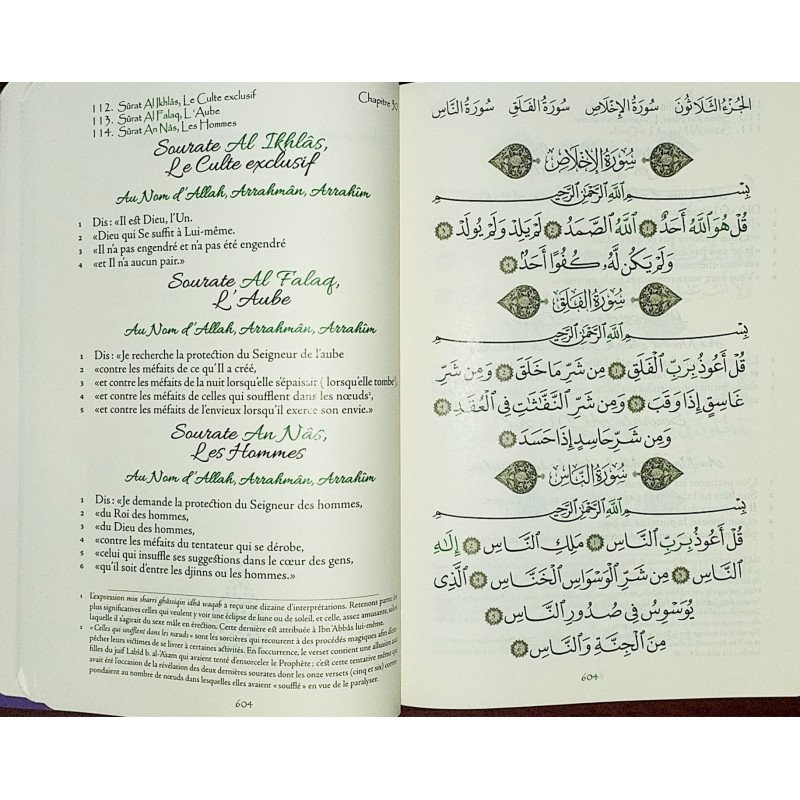 112. Sûrat Al Ikhlâs, Le Culte exclusif
113. Sûrat Al Falaq, L'Aube
114. Sûrat An Nâs, Les Hommes
Chapitre 30
Sourate Al Ikhlâs,
Le Culte exclusif
Au Nom d'Allah, Arrahmân, Arrahîm
1 Dis : «Il est Dieu, l'Un.
2 «Dieu qui Se suffit à Lui-même.
3 «Il n'a pas engendré et n'a pas été engendré
4 «et Il n'a aucun pair.»
Sourate Al Falaq,
L'Aube
Au Nom d'Allah, Arrahmân, Arrahîm
1 Dis : «Je recherche la protection du Seigneur de l'aube
2 «contre les méfaits de ce qu'Il a créé,
3 «et contre les méfaits de la nuit lorsqu'elle s'épaissit ( lorsqu'elle tombe)¹
4 «et contre les méfaits de celles qui soufflent dans les nœuds²,
5 «et contre les méfaits de l'envieux lorsqu'il exerce son envie.»
Sourate An Nâs,
Les Hommes
Au Nom d'Allah, Arrahmân, Arrahîm
1 Dis : «Je demande la protection du Seigneur des hommes,
2 «du Roi des hommes,
3 «du Dieu des hommes,
4 «contre les méfaits du tentateur qui se dérobe,
5 «celui qui insuffle ses suggestions dans le cœur des gens,
6 «qu'il soit d'entre les djinns ou les hommes.»
1 L'expression min sharri ghâssiqin idhâ waqab a reçu une dizaine d'interprétations. Retenons parmi les
plus significatives celles qui veulent y voir une éclipse de lune ou de soleil, et celle, assez amusante, selon
laquelle il s'agirait du sexe mâle en érection. Cette dernière est attribuée à Ibn 'Abbâs lui-même.
2 « Celles qui soufflent dans les nœuds » sont les sorcières qui recourent à des procédés magiques afin d'em-
pêcher leurs victimes de se livrer à certaines activités. En l'occurrence, le verset contient une allusion aux
filles du juif Labîd b. al-'Asam qui avaient tenté d'ensorceler le Prophète ; c'est cette tentative même qui
avait été l'occasion de la révélation des deux dernières sourates dont les onze versets (cinq et six) corres-
pondaient au nombre de nœuds dans lesquelles elles avaient « soufflé » en vue de le paralyser.
604
الجُزْءُ الثَّلَاثُونَ سُورَةُ الإِخْلَاصِ سُورَةُ الفَلَقِ سُورَةُ النَّاسِ
سُورَةُ الإِخْلَاصِ
بِسْمِ ٱللَّهِ ٱلرَّحْمَٰنِ ٱلرَّحِيمِ
قُلْ هُوَ ٱللَّهُ أَحَدٌ ١ ٱللَّهُ ٱلصَّمَدُ ٢ لَمْ يَلِدْ وَلَمْ يُولَدْ ٣
وَلَمْ يَكُن لَّهُۥ كُفُوًا أَحَدٌۢ ٤
سُورَةُ الفَلَقِ
بِسْمِ ٱللَّهِ ٱلرَّحْمَٰنِ ٱلرَّحِيمِ
قُلْ أَعُوذُ بِرَبِّ ٱلْفَلَقِ ١ مِن شَرِّ مَا خَلَقَ ٢ وَمِن شَرِّ
غَاسِقٍ إِذَا وَقَبَ ٣ وَمِن شَرِّ ٱلنَّفَّٰثَٰتِ فِى ٱلْعُقَدِ ٤
وَمِن شَرِّ حَاسِدٍ إِذَا حَسَدَ ٥
سُورَةُ النَّاسِ
بِسْمِ ٱللَّهِ ٱلرَّحْمَٰنِ ٱلرَّحِيمِ
قُلْ أَعُوذُ بِرَبِّ ٱلنَّاسِ ١ مَلِكِ ٱلنَّاسِ ٢ إِلَٰهِ
ٱلنَّاسِ ٣ مِن شَرِّ ٱلْوَسْوَاسِ ٱلْخَنَّاسِ ٤ ٱلَّذِى
يُوَسْوِسُ فِى صُدُورِ ٱلنَّاسِ ٥
مِنَ ٱلْجِنَّةِ وَٱلنَّاسِ ٦
604